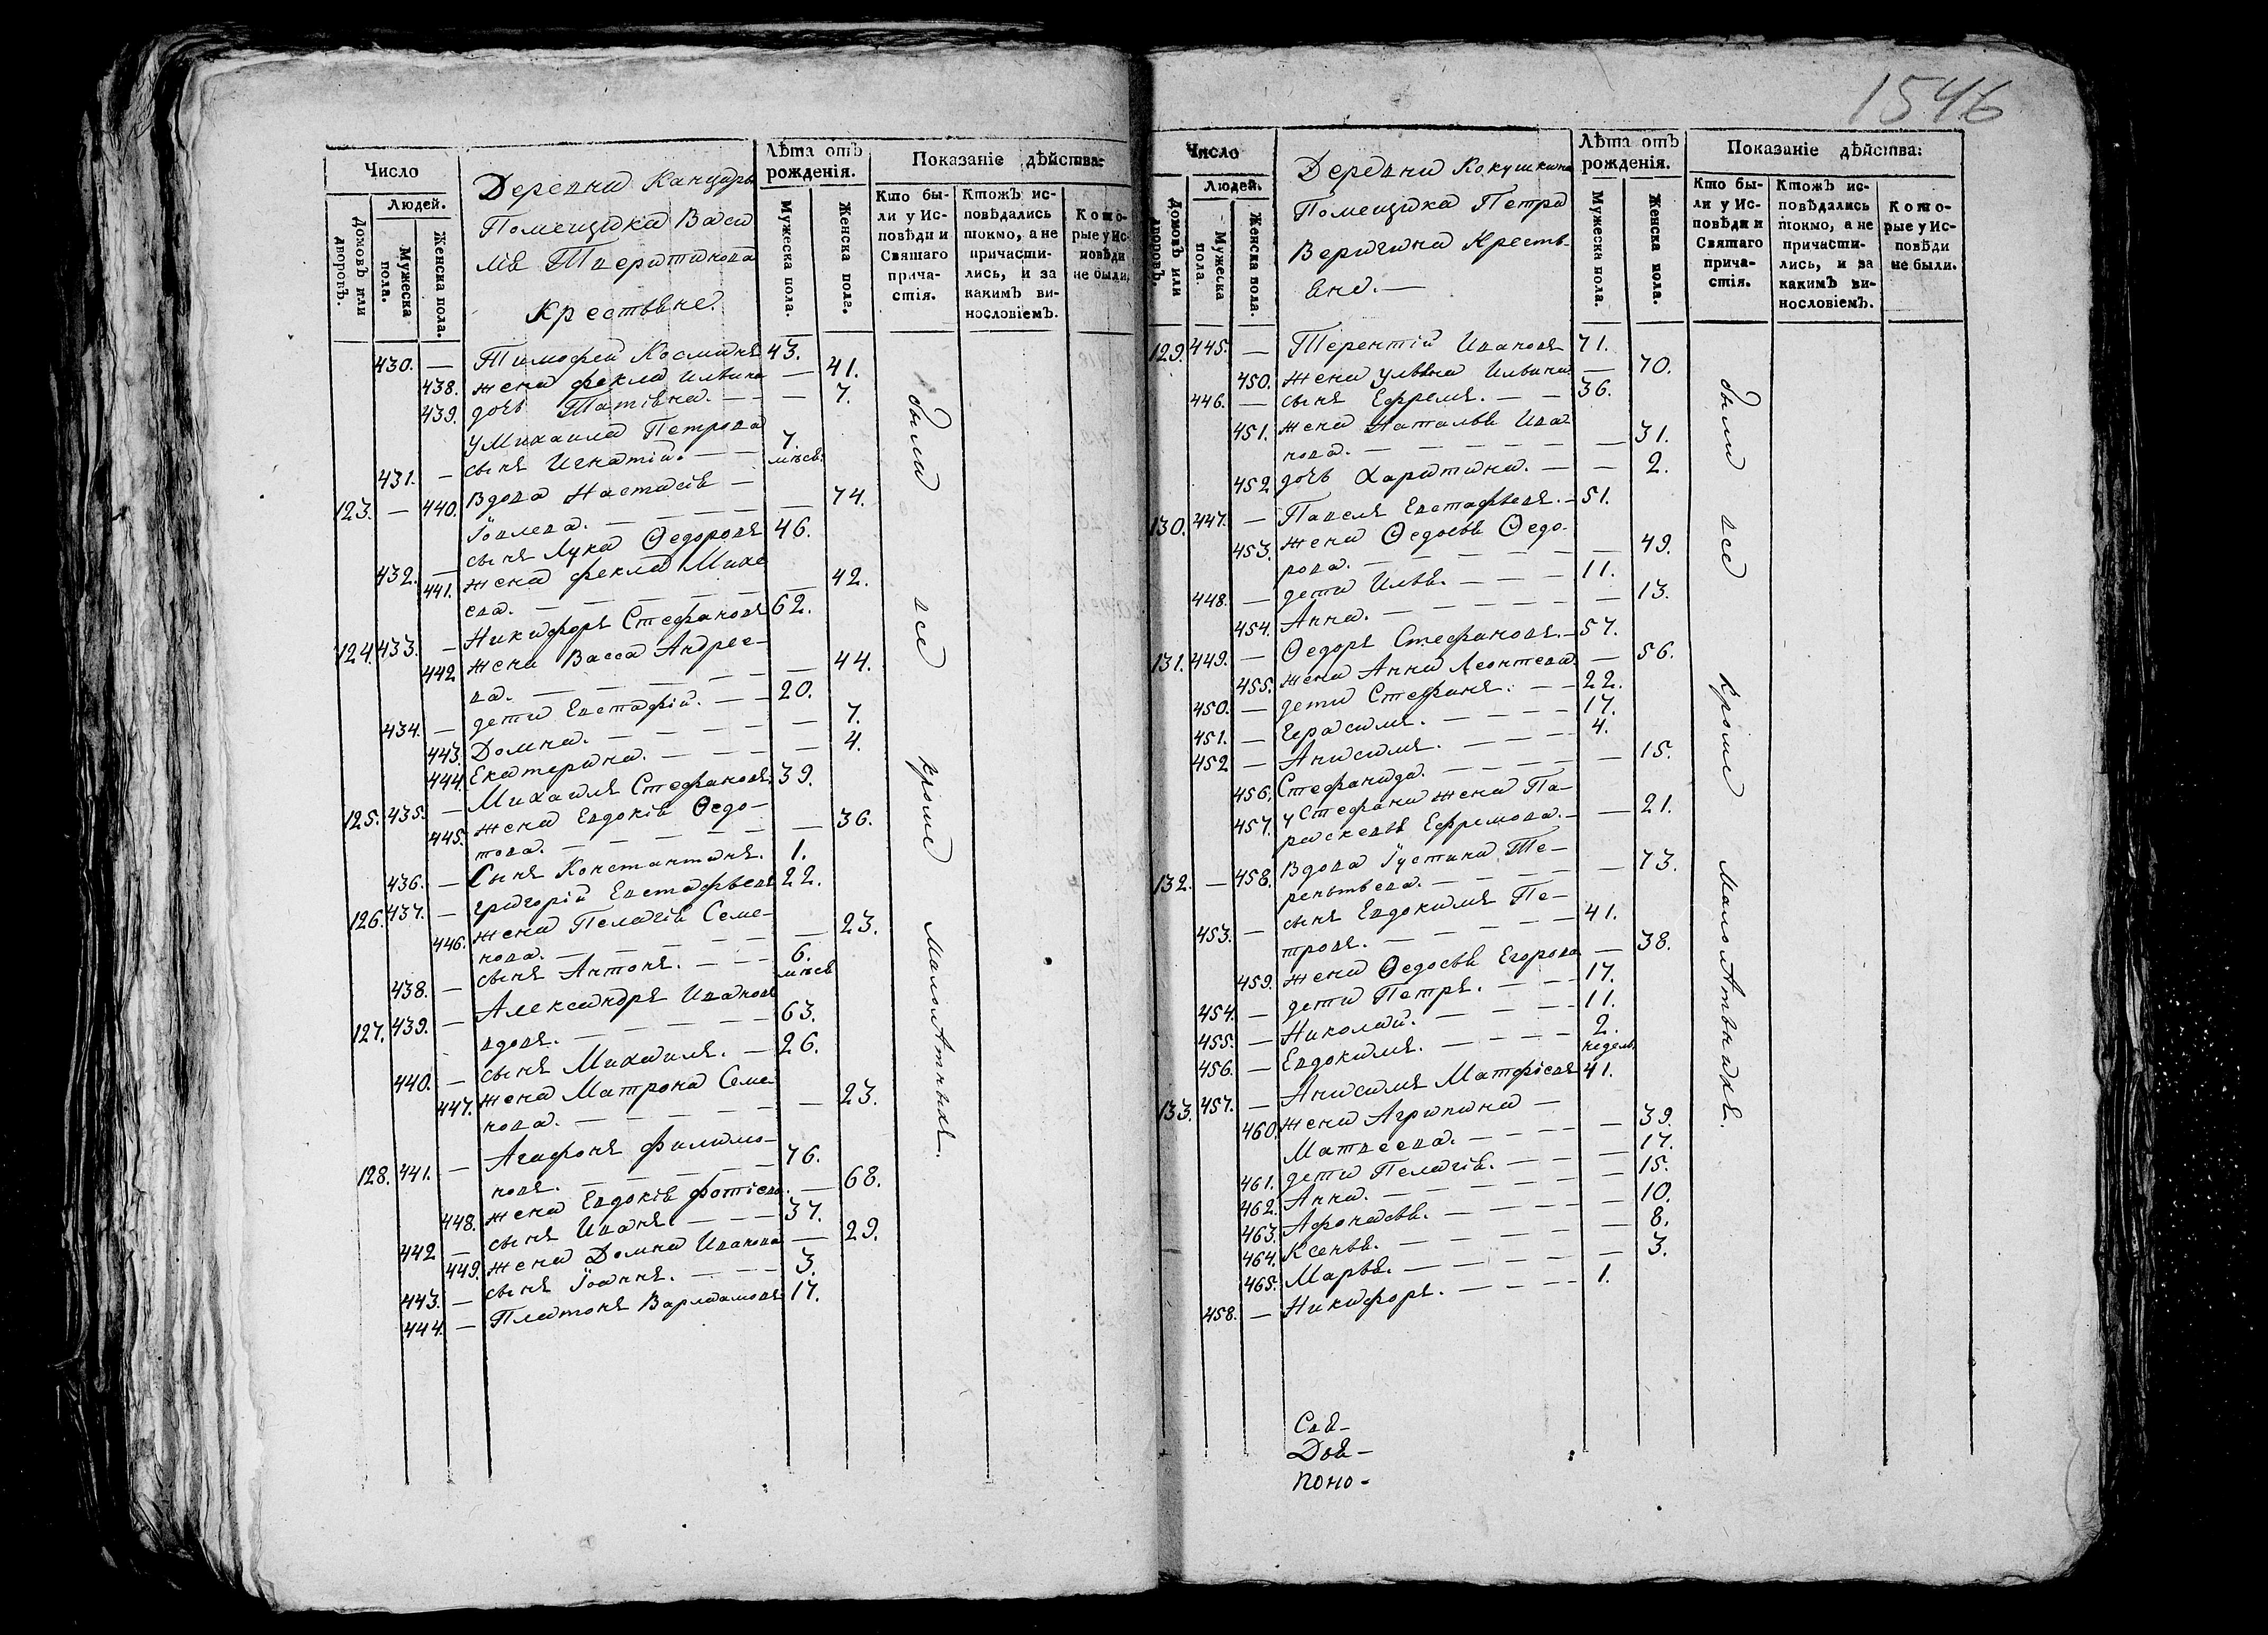 1546
Число
Людей.
Домовъ или дворовъ.
Мужеска пола.
Женска пола.
Деревни Канцыръ
Помещика Васи
лія Тверитинова
Крестьяне.
Лѣта отъ рожденія.
Мужеска пола.
Женска пола.
Показаніе дѣйства:
Кто бы-
ли у Ис-
повѣди и
Святаго
прича-
стія.
Ктожъ ис-
повѣдались
токмо, а не
причасти-
лись, и за
какимъ ви-
нословіемъ.
Кото-
рые у Ис-
повѣди
не были.
430. — Тимофей Косминъ 43.
438. жена фекла Ильина — 41.
439. дочь Татіяна. — — — 7.
у Михаила Петрова
431. — сынъ Игнатій. — — 7. мѣсяц.
123. — 440. Вдова Настасія —
Іовлева. — — — — — 74.
432. — сынъ Лука Ѳедоровъ 46.
441. жена фекла Михе
ева. — — — — — 42.
124. 433. — Никифоръ Стефановъ 62.
442 жена Васса Андрее-
ва. — — — — — 44.
434. — дети Евстафій. — — 20.
443. Домна. — — — — — 7.
444. Екатерина. — — — — 4.
125. 435. — Михаилъ Стефановъ. 39.
445. жена Евдокія Ѳедо-
това. — — — — — 36.
436. — Сынъ Константинъ. 1.
126. 437. — григорій Евстафьевъ 22.
446. жена Пелагія Семе-
нова. — — — — — 23.
438. — сынъ Антонъ. — — — 6. мѣсяц
127. 439. — Александръ Ивановъ
вдовъ. — — — — — 63.
440. — сынъ Михаилъ. — 26.
447. жена Матрона Семе
нова. — — — — — 23.
128. 441. — Агафонъ филимо-
новъ. — — — — 76.
448. жена Евдокія фотіева. — 68.
442 — сынъ Иванъ. — — — 37.
449. жена Домна Иванова — 29.
443. — сынъ Іоаннъ. — — — 3.
444. — Платонъ Варламовъ 17.
были все кроме малолѣтныхъ.
Число
Людей.
Домовъ или дворовъ.
Мужеска пола.
Женска пола.
Деревни Кокушкина
Помещика Петра
Веригина Кресть-
яне. —
Лѣта отъ рожденія.
Мужеска пола.
Женска пола.
Показаніе дѣйства:
Кто бы-
ли у Ис-
повѣди и
Святаго
прича-
стія.
Ктожъ ис-
повѣдались
токмо, а не
причасти-
лись, и за
какимъ ви-
нословіемъ.
Кото-
рые у Ис-
повѣди
не были.
129. 445. — Терентій Ивановъ 71.
450. жена Ульяна Ильина — 70.
446. — сынъ Ефремъ. — — 36.
451. жена Наталья Ива
нова. — — — — — — 31.
452 дочь Харитина. — — 2.
130. 447. — Павелъ Евстафьевъ. — 51.
453. жена Ѳедосья Ѳедо-
рова. — — — — — 49.
448. — дети Илья. — — — 11.
454. Анна. — — — — — — 13.
131. 449. — Ѳедоръ Стефановъ. — 57.
455. жена Анна Леонтева. — 56.
450. — дети Стефанъ. — — 22.
451. — Герасимъ. — — — — 17.
452 — Анисимъ. — — — 4.
456. Стефанида. — — — — — 15.
457. у Стефана жена Па-
раскевья Ефремова. — — 21.
132. — 458. Вдова Іустина Те-
рентьева. — — — — — 73.
453. — сынъ Евдокимъ Пе-
тровъ. — — — — — 41.
459. жена Ѳедосья Егорова — 38.
454. — дети Петръ. — — — 17.
455. — Николай. — — — — 11.
456. — Евдокимъ. — — — — 2. недель
133. 457. — Анисимъ Матфіевъ 41.
460. жена Агрипина —
Матвеева. — — — — — 39.
461. дети Пелагія. — — — 17.
462. Анна. — — — — — — 15.
463. Афонасья. — — — — — 10.
464. Ксенья. — — — — — — 8.
465. Марья. — — — — — — 3.
458. — Никифоръ. — — — — 1.
были все кроме малолѣтныхъ.
Свя-
Дья-
поно-